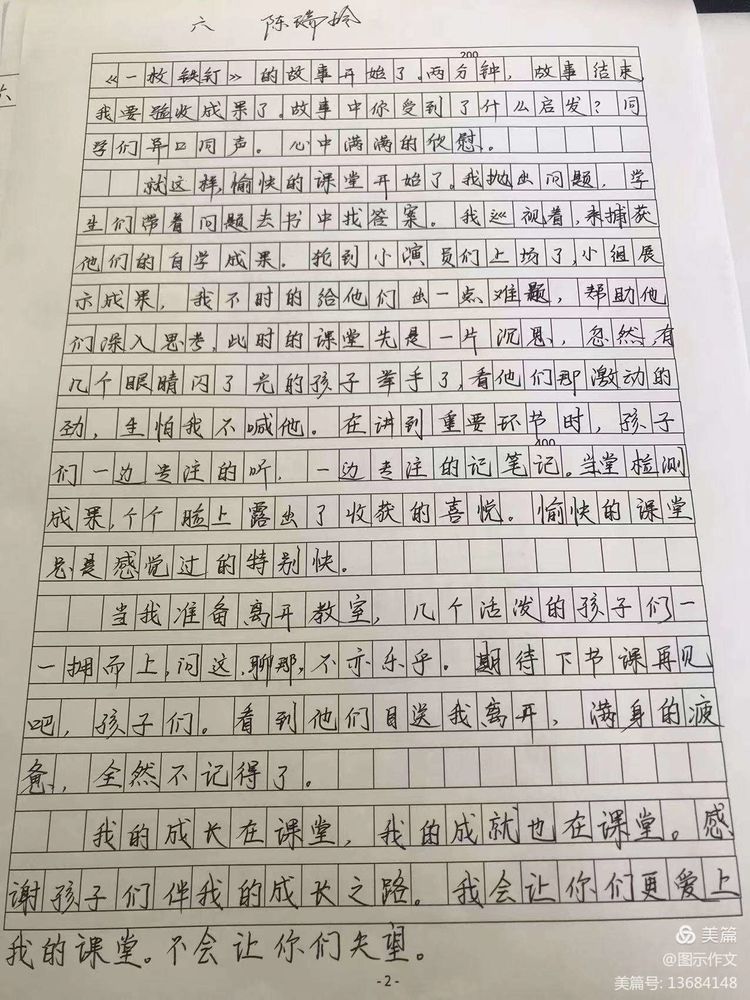 六 陈瑞玲
200
《一枚铁钉》的故事开始了。两分钟，故事结束
我要验收成果了。故事中你受到了什么启发？同
学们异口同声。心中满满的欣慰。
就这样，愉快的课堂开始了。我抛出问题，学
生们带着问题去书中找答案。我巡视着，来捕获
他们的自学成果。轮到小演员们上场了，小组展
示成果，我不时的给他们出一点难题，帮助他
们深入思考，此时的课堂先是一片沉思，忽然，有
几个眼睛闪了光的孩子举手了，看他们那激动的
劲，生怕我不喊他。在讲到重要环节时，孩子
400
们一边专注的听，一边专注的记笔记。当堂检测
成果，个个脸上露出了收获的喜悦。愉快的课堂
总是感觉过的特别快。
当我准备离开教室，几个活泼的孩子们一
一拥而上，问这，聊那，不亦乐乎。期待下书课再见
吧，孩子们。看到他们目送我离开，满身的疲
惫，全然不记得了。
我的成长在课堂，我的成就也在课堂。感
谢孩子们伴我的成长之路。我会让你们更爱上
我的课堂。不会让你们失望。
-2-
美篇
@图示作文
美篇号: 13684148